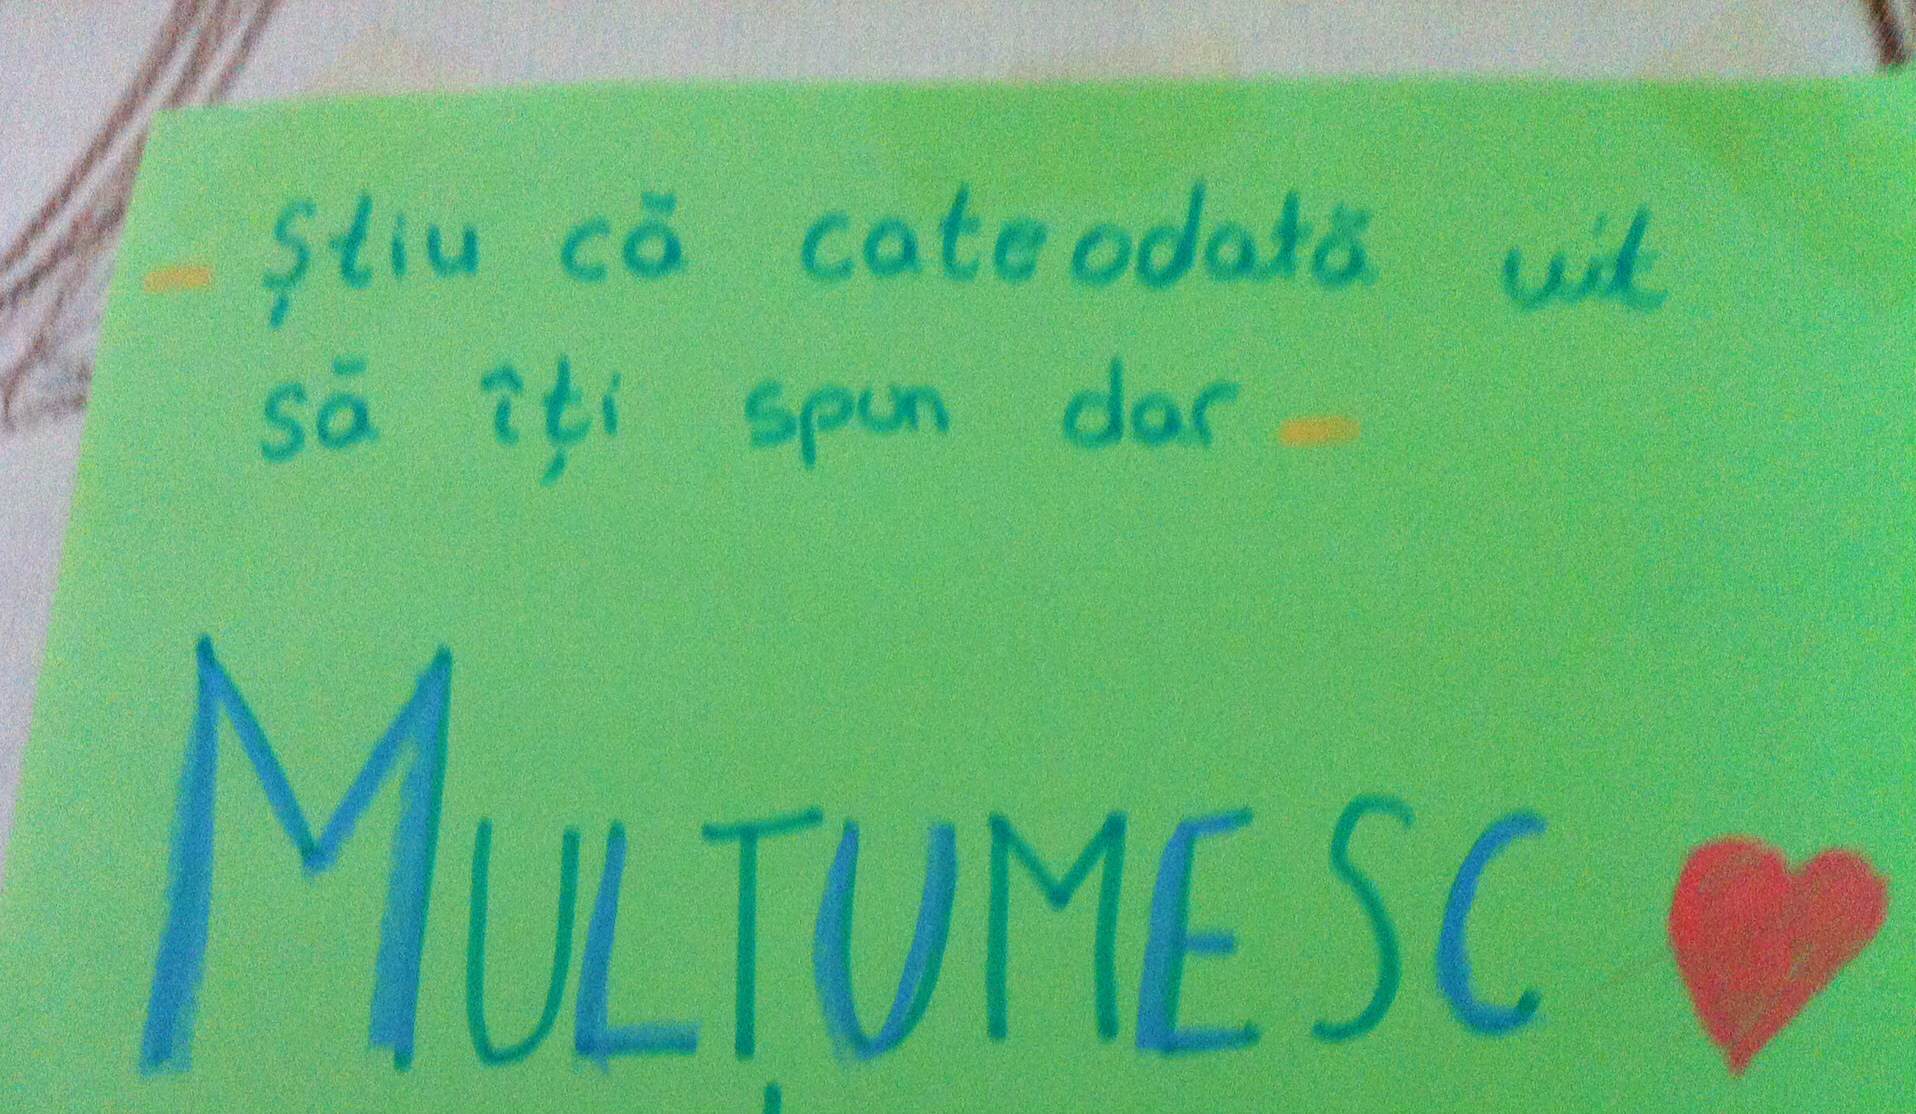 - Știu că cateodată uit
să îți spun dar -
MULȚUMESC